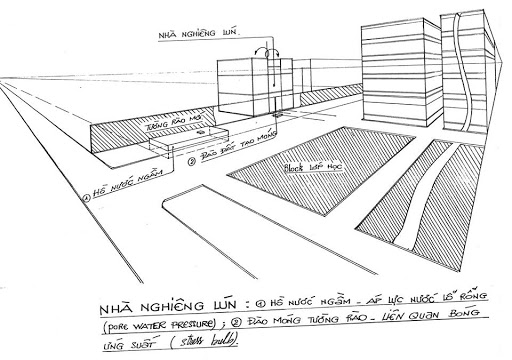 NHÀ NGHIÊNG LÚN.
TƯỜNG RÀO MỚI
② ĐÀO ĐẤT TẠO MÓNG
① HỒ NƯỚC NGẦM
Block LỚP HỌC
NHÀ NGHIÊNG LÚN : ① HỒ NƯỚC NGẦM - ÁP LỰC NƯỚC LỖ RỖNG
(PORE WATER PRESSURE) ; ② ĐÀO MÓNG TƯỜNG RÀO - LIÊN QUAN BÓNG
ỨNG SUẤT ( stress bulb).